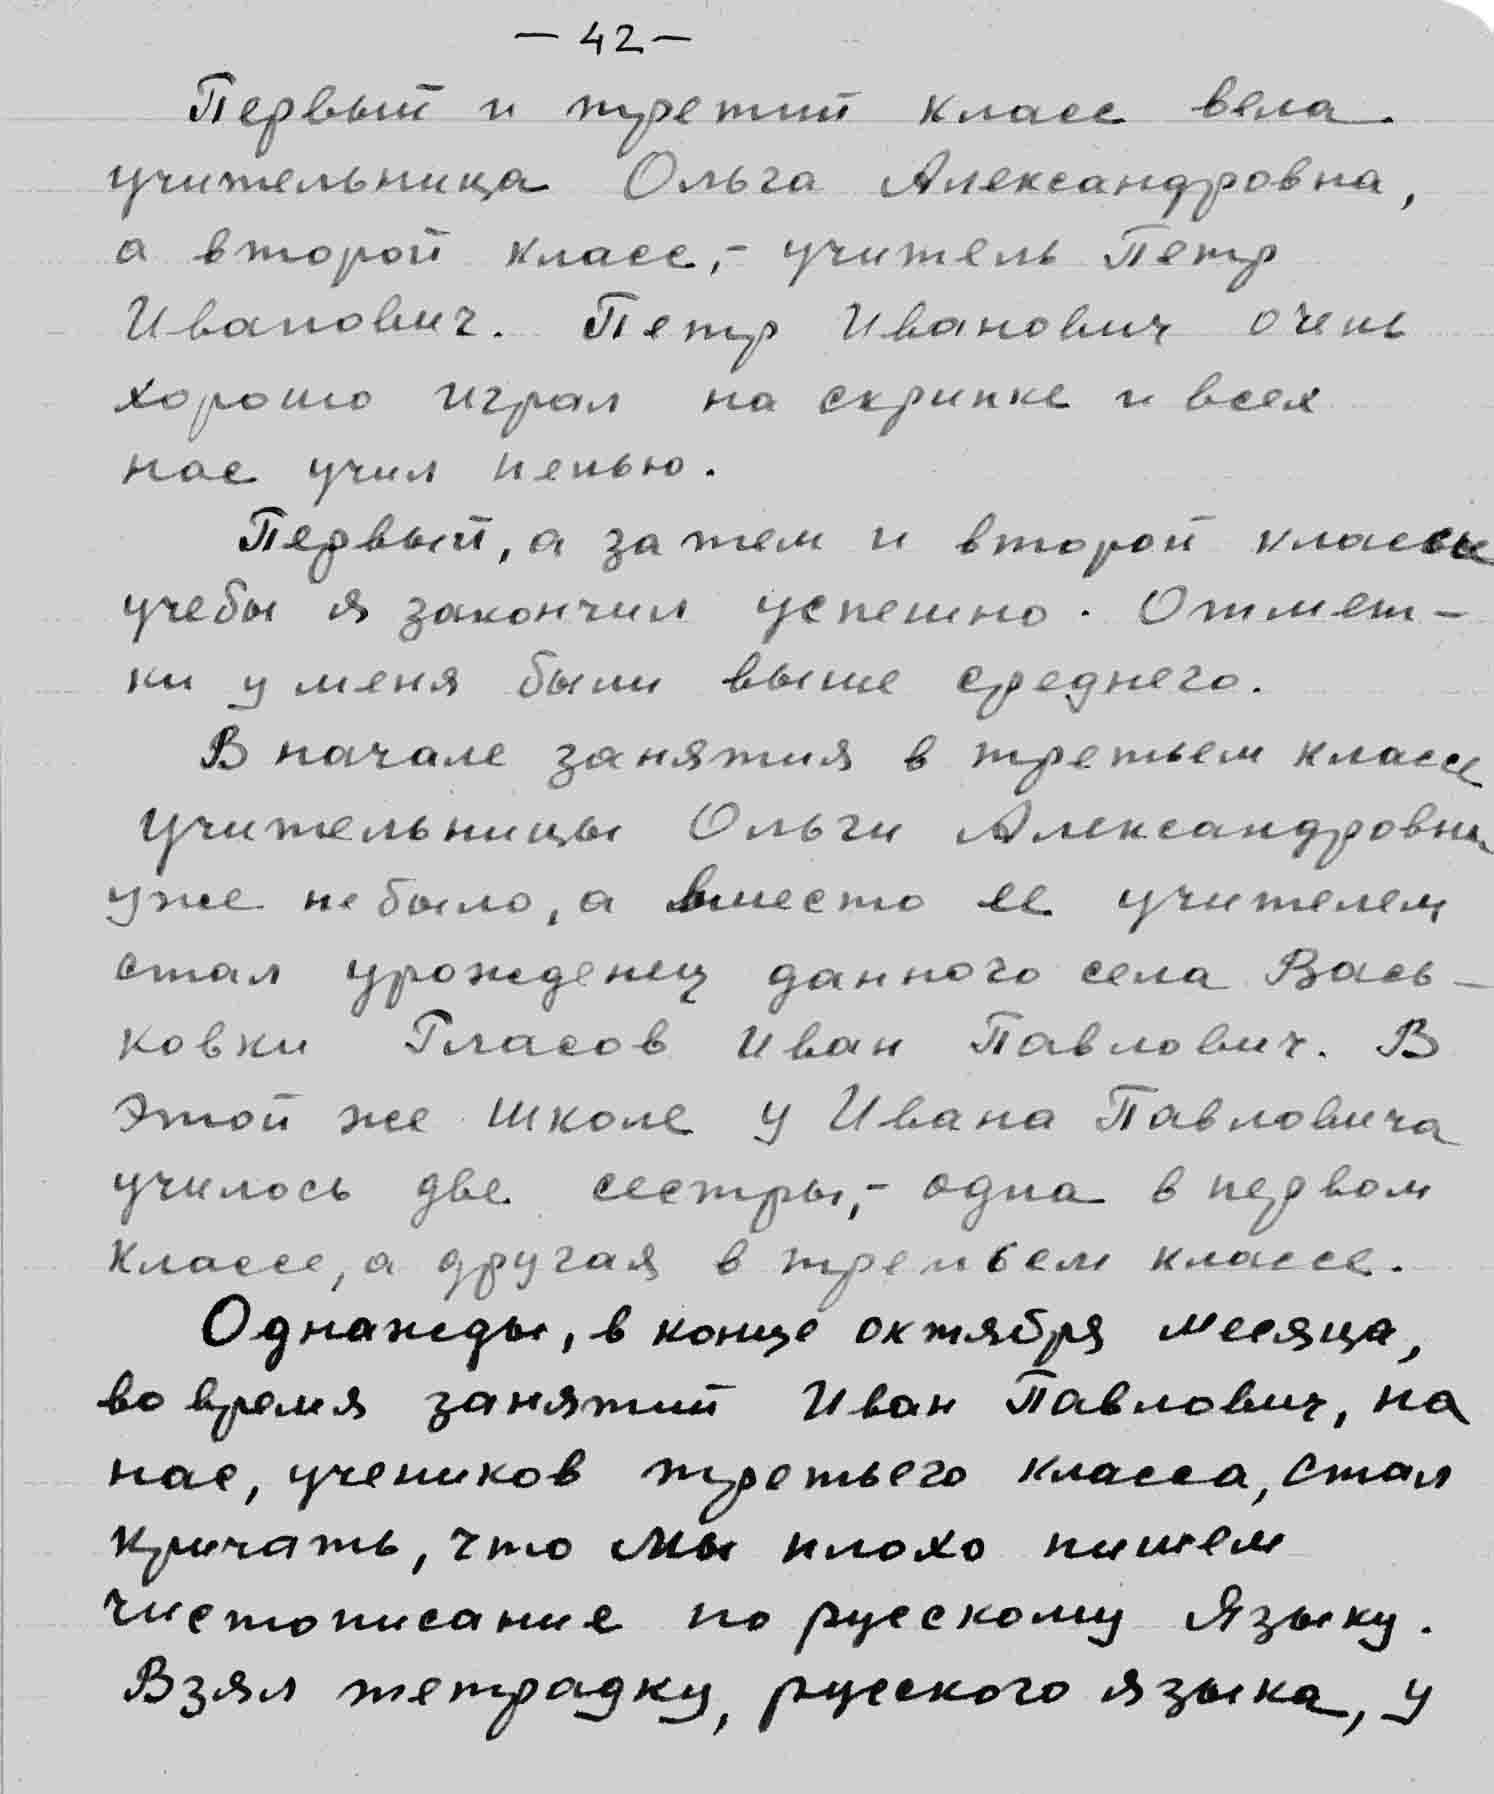 — 42 —
Первый и третий класс вела
учительница Ольга Александровна,
а второй класс,- учитель Петр
Иванович. Петр Иванович очень
хорошо играл на скрипке и всех
нас учил пенью.
Первый, а затем и второй классы
учебы я закончил успешно. Отмет-
ки у меня были выше среднего.
В начале занятия в третьем классе
учительницы Ольги Александровны
уже не было, а вместо ее учителем
стал урожденец данного села Вась-
ковки Гласов Иван Павлович. В
этой же школе у Ивана Павловича
училось две сестры,- одна в первом
классе, а другая в третьем классе.
Однажды, в конце октября месяца,
во время занятий Иван Павлович, на
нас, учеников третьего класса, стал
кричать, что мы плохо пишем
чистописание по русскому языку.
Взял тетрадку, русского языка, у